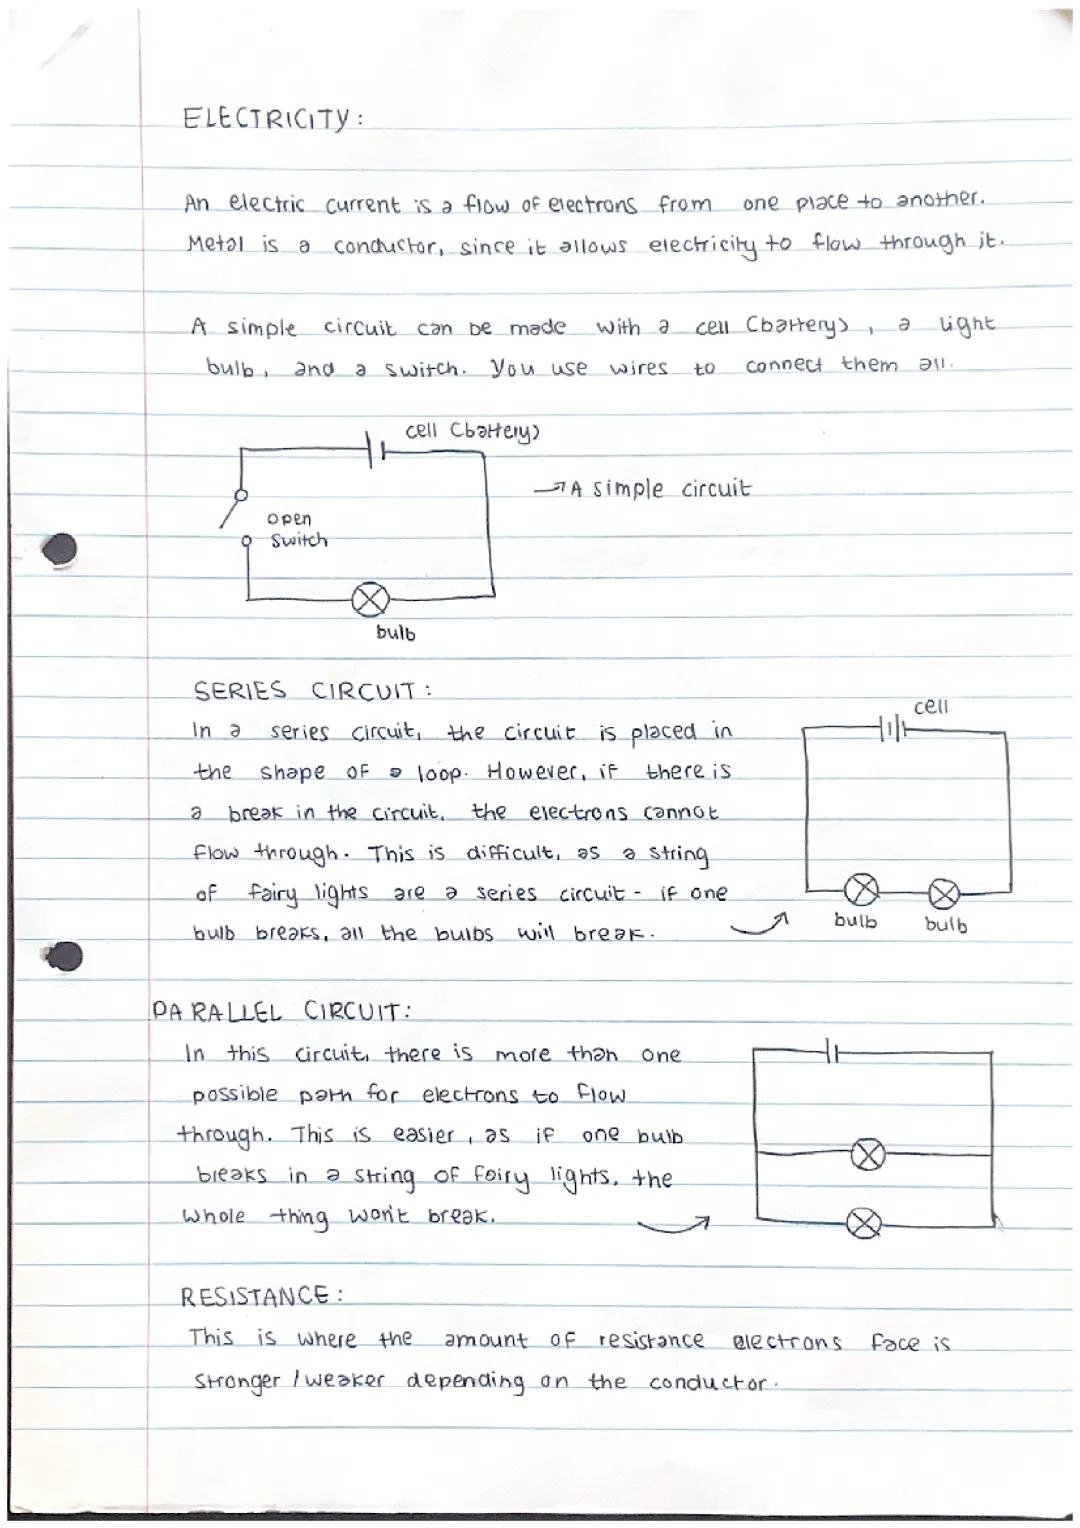 ELECTRICITY:
An electric current is a flow of electrons from one place to another.
Metal is a conductor, since it allows electricity to flow through it.
A simple circuit can be made with a cell (battery), a light
bulb, and a switch. You use wires to connect them all.
cell (battery)
→ A simple circuit
open
switch
bulb
SERIES CIRCUIT:
In a series circuit, the circuit is placed in
the shape of a loop. However, if there is
a break in the circuit, the electrons cannot
flow through. This is difficult, as a string
of fairy lights are a series circuit - if one
bulb breaks, all the bulbs will break.
cell
bulb
bulb
PARALLEL CIRCUIT:
In this circuit, there is more than one
possible path for electrons to flow
through. This is easier, as if one bulb
breaks in a string of fairy lights, the
whole thing won't break.
RESISTANCE:
This is where the amount of resistance electrons face is
stronger / weaker depending on the conductor.